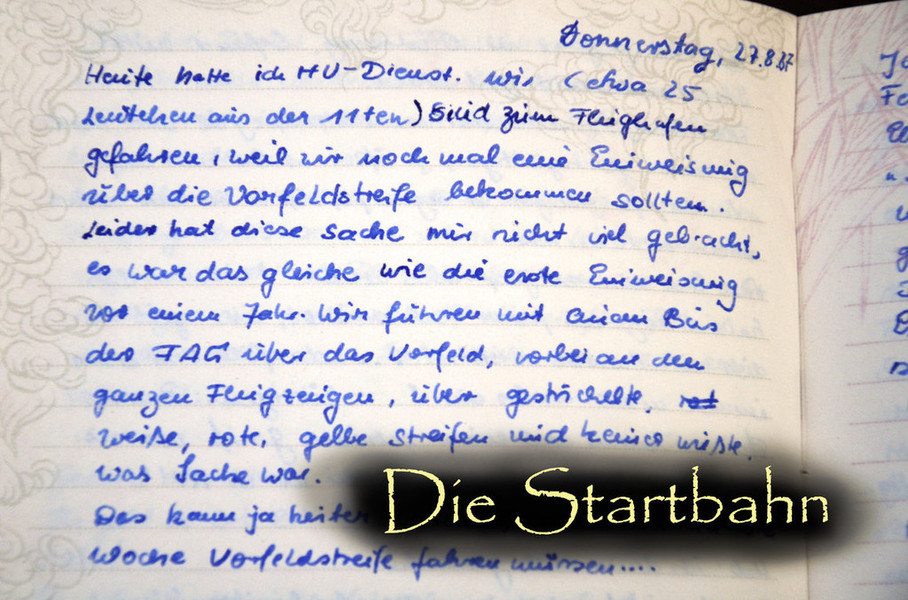 Donnerstag, 27.8.87
Heute hatte ich HU-Dienst. Wir (etwa 25
Leutchen aus der 11ten) sind zum Flughafen
gefahren, weil wir noch mal eine Einweisung
über die Vorfeldstreife bekommen sollten.
Leider hat diese Sache mir nicht viel gebracht,
es war das gleiche wie die erste Einweisung
vor einem Jahr. Wir fuhren mit einem Bus
der FAG über das Vorfeld, vorbei an den
ganzen Flugzeugen, über gestrichelte,
weiße, rote, gelbe Streifen und keiner wußte,
was Sache war.
Das kann ja heiter
Woche Vorfeldstreife fahren müssen....
Die Startbahn